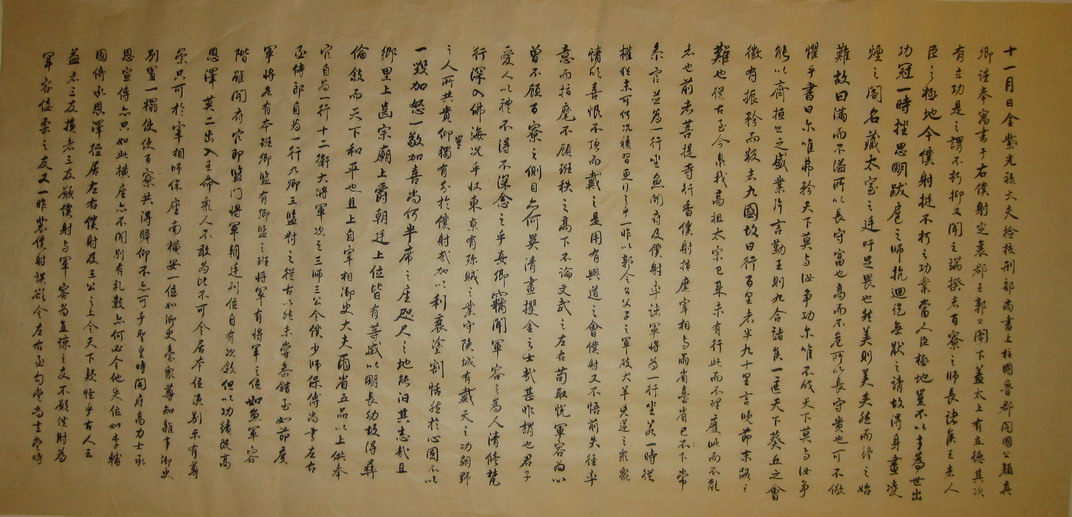 十一月日金紫光祿大夫檢校刑部尚書上柱國魯郡開國公顏真
卿謹奉寓書于右僕射定襄郡王郭公閣下蓋太上有立德其次
有立功是之謂不朽抑又聞之端揆者百寮之師長諸侯王者人
臣之極地今僕射挺不朽之功業當人臣極地豈不以才為世出
功冠一時挫思明跋扈之師抗迴紇無猒之請故得身畫凌
煙之閣名藏太室之廷吁足畏也然美則美矣然而終之始
難故曰滿而不溢所以長守富也高而不危所以長守貴也可不儆
懼乎書曰尔唯弗矜天下莫與汝爭功尔唯不伐天下莫與汝爭
能以齊桓之盛業片言勤王則九合諸侯一匡天下葵丘之會
微有振矜而叛者九國故曰行百里者半九十里言晚節末路之
難也從古至今泉我高祖太宗已來未有行此而不理廢此而不亂
者也前者菩提寺行香僕射指麾宰相與兩省臺省已下常
參官並為一行坐魚開府及僕射率諸軍將為一行坐若一時從
權猶未可何況積習更行之乎一昨以郭令公父子之軍破犬羊兇逆之眾眾
情欣喜恨不頂而戴之是用有興道之會僕射又不悟前失徑率
意而指麾不顧班秩之高下不論文武之左右苟取悅軍容為心
曾不顧百寮之側目亦何異清晝攫金之士哉甚非謂也君子
愛人以禮不得不深念之乎真卿竊聞軍容之為人清修梵
行深入佛海況乎收東京有殄賊之業守陝城有戴天之功朝野
之人所共貴仰獨有分於僕射哉加以利衰塗割恬然於心固不以
一毀加怒一敬加喜尚何半席之座咫尺之地能汩其志哉且
鄉里上齒宗廟上爵朝廷上位皆有等威以明長幼故得彝
倫敘而天下和平也且上自宰相御史大夫兩省五品以上供奉
官自為一行十二衛大將軍次之三師三公令僕少師保傅尚書左右
丞侍郎自為一行九卿三監對之從古以然未嘗參錯至如節度
軍將各有本班卿監有卿監之班將軍有將軍之位如魚軍容
階雖開府官即監門將軍朝廷列位自有次敘但以功績既高
恩澤莫二出入王命眾人不敢為比不可令居本位須別示有尊
崇只可於宰相師保座南橫安一位如御史臺眾尊知雜事御史
別置一榻使百寮共得瞻仰不亦可乎聖皇時開府高力士承
恩宣傳亦只如此橫座亦不聞別有禮數亦何必令他失位如李輔
國倚承恩澤徑居左右僕射及三公之上令天下疑怪乎古人云
益者三友損者三友願僕射與軍容為直諒之友不願僕射為
軍容佞柔之友又一昨裴僕射誤欲令左右丞勾當尚書當時